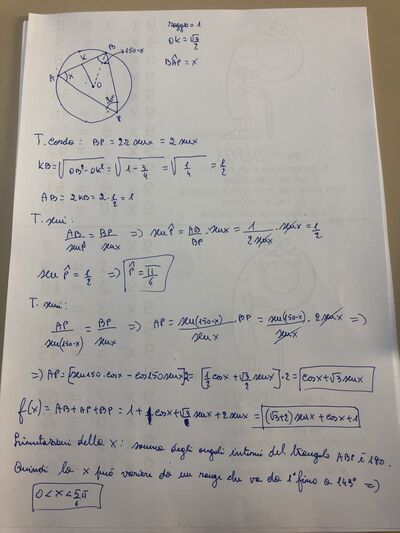 raggio = 1
OK = √3/2
BÂP = x
A K B 150-x
x O
P
T. corda: BP = 2r senx = 2 senx
KB = √(OB² - OK²) = √(1 - 3/4) = √(1/4) = 1/2
AB = 2KB = 2 · 1/2 = 1
T. seni:
AB/senP̂ = BP/senx => senP̂ = AB/BP · senx = 1/(2senx) · senx = 1/2
senP̂ = 1/2 => P̂ = π/6
T. seni:
AP/sen(150-x) = BP/senx => AP = sen(150-x)/senx · BP = sen(150-x)/senx · 2senx =>
=> AP = [sen150 · cosx - cos150 senx]2 = [1/2 cosx + √3/2 senx] · 2 = cosx + √3 senx
f(x) = AB + AP + BP = 1 + cosx + √3 senx + 2senx = (√3+2) senx + cosx + 1
Limitazioni della x: somma degli angoli interni del triangolo ABP è 180.
Quindi la x può variare da un range che va da 1° fino a 149° =>
0 < x < 5/6 π